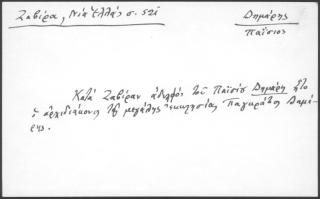 Ζαβίρα, Νέα Ἑλλάς σ. 521
Δημάρης
Παΐσιος
Κατά Ζαβίραν ἀδελφός τοῦ Παϊσίου Δημάρη ἦτο
ὁ ἀρχιδιάκονος τῆς μεγάλης ἐκκλησίας Παγκράτιος Δημά-
ρης.